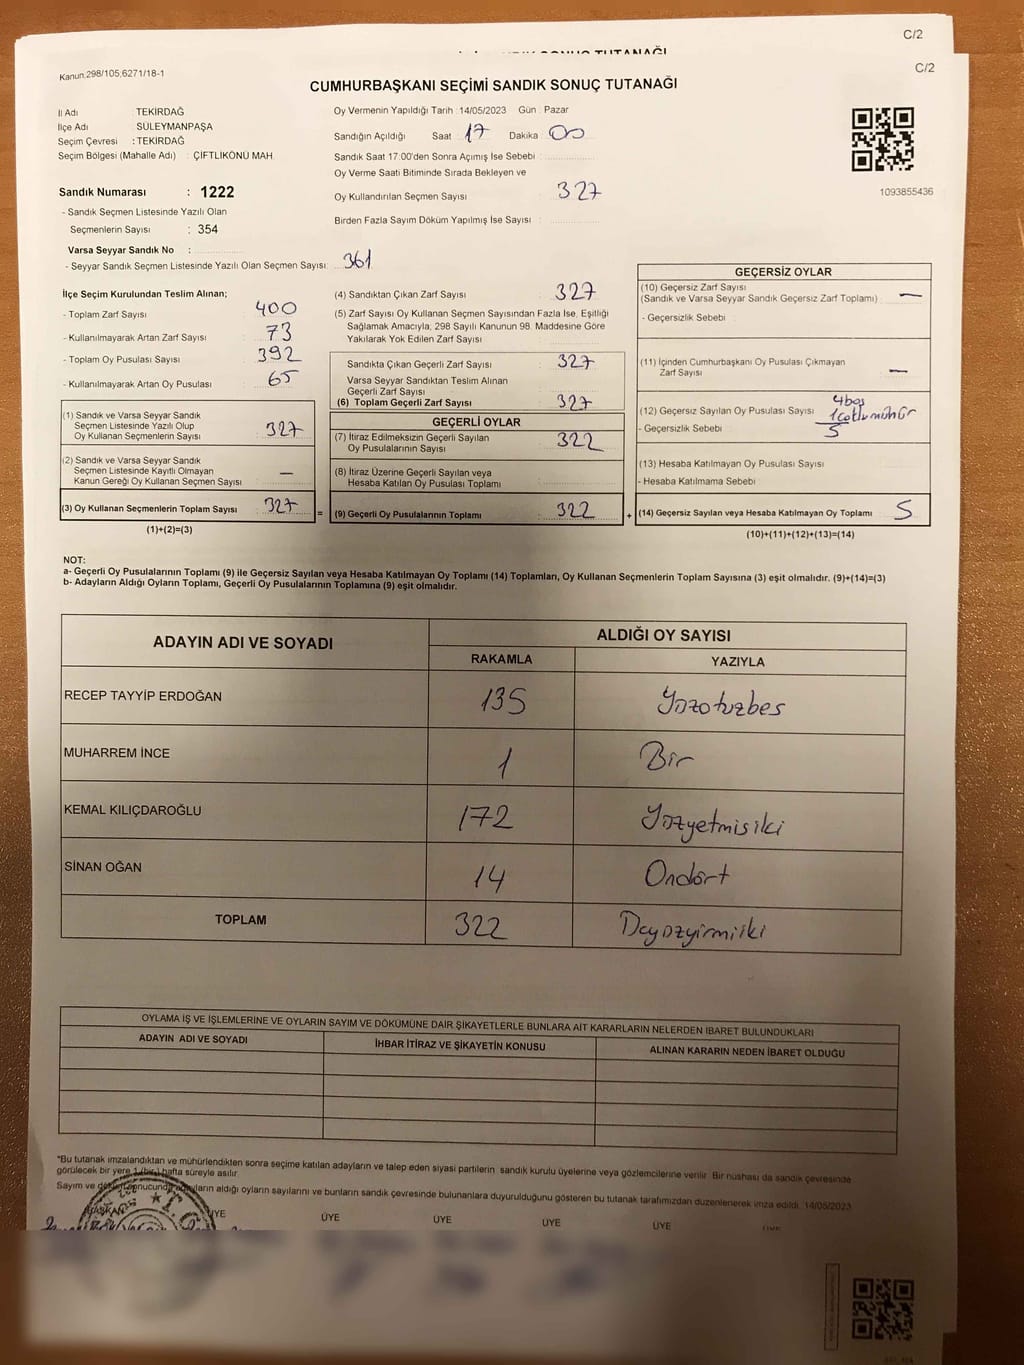 C/2
C/2
Kanun.298/105;6271/18-1
CUMHURBAŞKANI SEÇİMİ SANDIK SONUÇ TUTANAĞI
İl Adı TEKİRDAĞ
İlçe Adı SÜLEYMANPAŞA
Seçim Çevresi : TEKİRDAĞ
Seçim Bölgesi (Mahalle Adı) : ÇİFTLİKÖNÜ MAH.
Oy Vermenin Yapıldığı Tarih :14/05/2023 Gün : Pazar
Sandığın Açıldığı Saat 17 Dakika 00
Sandık Saat 17:00'den Sonra Açımış İse Sebebi :
Oy Verme Saati Bitiminde Sırada Bekleyen ve
Oy Kullandırılan Seçmen Sayısı 327
Birden Fazla Sayım Döküm Yapılmış İse Sayısı :
1093855436
Sandık Numarası : 1222
- Sandık Seçmen Listesinde Yazılı Olan
Seçmenlerin Sayısı : 354
Varsa Seyyar Sandık No :
- Seyyar Sandık Seçmen Listesinde Yazılı Olan Seçmen Sayısı: 361
İlçe Seçim Kurulundan Teslim Alınan;
- Toplam Zarf Sayısı : 400
- Kullanılmayarak Artan Zarf Sayısı : 73
- Toplam Oy Pusulası Sayısı : 392
- Kullanılmayarak Artan Oy Pusulası : 65
(1) Sandık ve Varsa Seyyar Sandık
Seçmen Listesinde Yazılı Olup
Oy Kullanan Seçmenlerin Sayısı : 327
(2) Sandık ve Varsa Seyyar Sandık
Seçmen Listesinde Kayıtlı Olmayan
Kanun Gereği Oy Kullanan Seçmen Sayısı : —
(3) Oy Kullanan Seçmenlerin Toplam Sayısı : 327
(1)+(2)=(3)
(4) Sandıktan Çıkan Zarf Sayısı : 327
(5) Zarf Sayısı Oy Kullanan Seçmen Sayısından Fazla İse, Eşitliği
Sağlamak Amacıyla; 298 Sayılı Kanunun 98. Maddesine Göre
Yakılarak Yok Edilen Zarf Sayısı :
Sandıkta Çıkan Geçerli Zarf Sayısı : 327
Varsa Seyyar Sandıktan Teslim Alınan
Geçerli Zarf Sayısı :
(6) Toplam Geçerli Zarf Sayısı : 327
GEÇERLİ OYLAR
(7) İtiraz Edilmeksizin Geçerli Sayılan
Oy Pusulalarının Sayısı : 322
(8) İtiraz Üzerine Geçerli Sayılan veya
Hesaba Katılan Oy Pusulası Toplamı :
= (9) Geçerli Oy Pusulalarının Toplamı : 322 +
GEÇERSİZ OYLAR
(10) Geçersiz Zarf Sayısı
(Sandık ve Varsa Seyyar Sandık Geçersiz Zarf Toplamı) : —
- Geçersizlik Sebebi :
(11) İçinden Cumhurbaşkanı Oy Pusulası Çıkmayan
Zarf Sayısı —
(12) Geçersiz Sayılan Oy Pusulası Sayısı 4 boş
- Geçersizlik Sebebi 5
(13) Hesaba Katılmayan Oy Pusulası Sayısı
- Hesaba Katılmama Sebebi
(14) Geçersiz Sayılan veya Hesaba Katılmayan Oy Toplamı 5
(10)+(11)+(12)+(13)=(14)
NOT:
a- Geçerli Oy Pusulalarının Toplamı (9) ile Geçersiz Sayılan veya Hesaba Katılmayan Oy Toplamı (14) Toplamları, Oy Kullanan Seçmenlerin Toplam Sayısına (3) eşit olmalıdır. (9)+(14)=(3)
b- Adayların Aldığı Oyların Toplamı, Geçerli Oy Pusulalarının Toplamına (9) eşit olmalıdır.
ADAYIN ADI VE SOYADI ALDIĞI OY SAYISI
RAKAMLA YAZIYLA
RECEP TAYYİP ERDOĞAN 135 Yüzotuzbeş
MUHARREM İNCE 1 Bir
KEMAL KILIÇDAROĞLU 172 Yüzyetmişiki
SİNAN OĞAN 14 Ondört
TOPLAM 322 Üçyüzyirmiiki
OYLAMA İŞ VE İŞLEMLERİNE VE OYLARIN SAYIM VE DÖKÜMÜNE DAİR ŞİKAYETLERLE BUNLARA AİT KARARLARIN NELERDEN İBARET BULUNDUKLARI
ADAYIN ADI VE SOYADI İHBAR İTİRAZ VE ŞİKAYETİN KONUSU ALINAN KARARIN NEDEN İBARET OLDUĞU
*Bu tutanak imzalandıktan ve mühürlendikten sonra seçime katılan adayların ve talep eden siyasi partilerin sandık kurulu üyelerine veya gözlemcilerine verilir. Bir nüshası da sandık çevresinde
görülecek bir yere 1 (bir) hafta süreyle asılır.
Sayım ve döküm sonucunda adayların aldığı oyların sayılarını ve bunların sandık çevresinde bulunanlara duyurulduğunu gösteren bu tutanak tarafımızdan düzenlenerek imza edildi. 14/05/2023
BAŞKAN ÜYE ÜYE ÜYE ÜYE ÜYE ÜYE